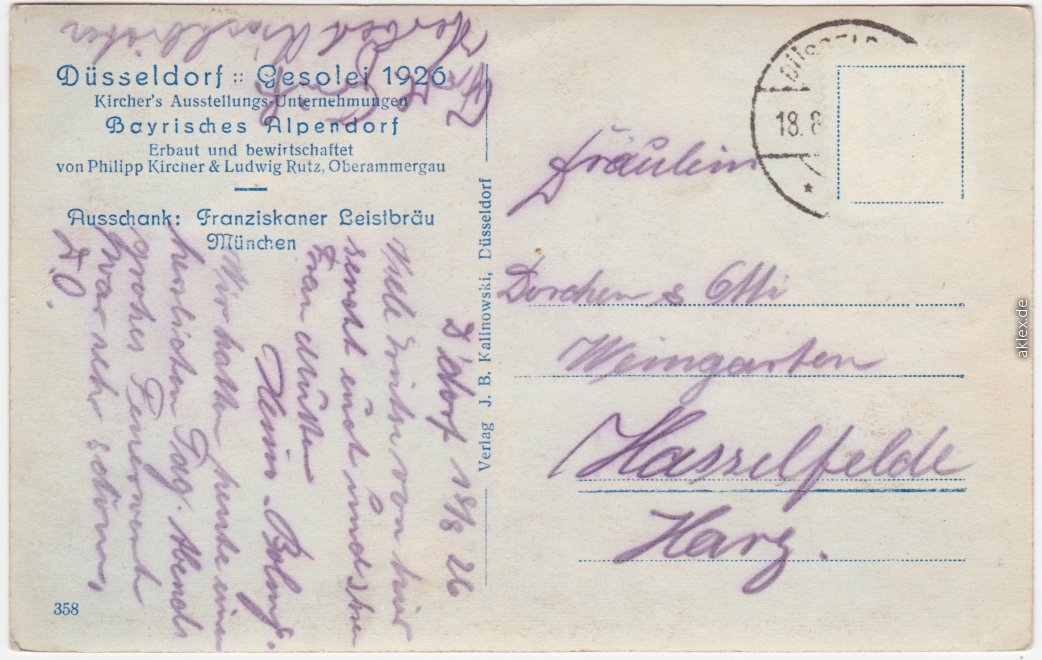 Düsseldorf :: Gesolei 1926
Kircher's Ausstellungs-Unternehmungen
Bayrisches Alpendorf
Erbaut und bewirtschaftet
von Philipp Kircher & Ludwig Rutz, Oberammergau
Ausschank: Franziskaner Leistbräu
München
D'dorf 18/8 26
Viele von hier
sendet euch
Frau Mutter
Wir hatten heute eine
herrlichen Tag. Abends
großes Feuerwerk
war sehr schön,
358
Verlag J. B. Kalinowski, Düsseldorf
DÜSSELD
18. 8
Fräulein
Dorchen & Otti
Weingarten
Hasselfelde
Harz.
aklex.de